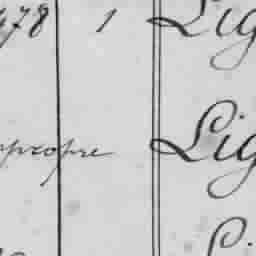 478 1 Lig
propre Lig